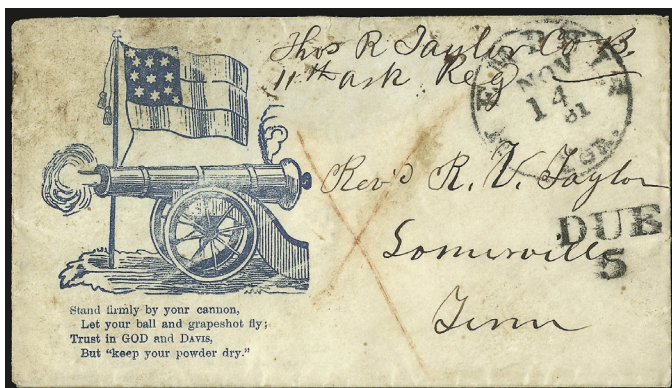 Thos R Taylor Co B.
11th Ark Reg
MEMPHIS
NOV
14
61
Rev'd R. V. Taylor
Somerville
Tenn
DUE
5
Stand firmly by your cannon,
Let your ball and grapeshot fly;
Trust in GOD and DAVIS,
But "keep your powder dry."